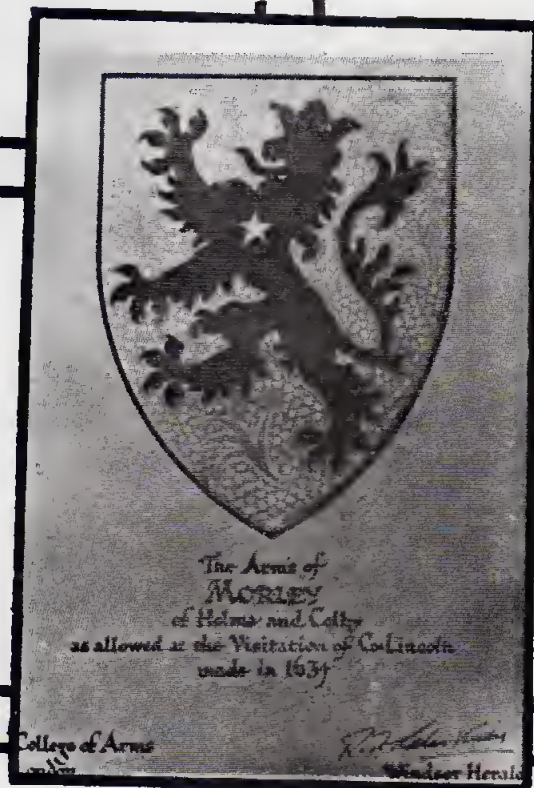 The Arms of
MORLEY
of Holme and Colby
as allowed at the Visitation of Co. Lincoln
made in 1634
College of Arms
London
Windsor Herald